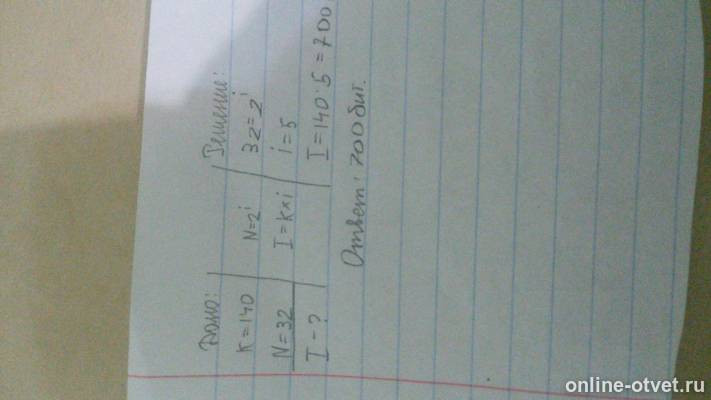 Дано: Решение:
K = 140 N=2^i 32=2^i
N=32 I=K×i i=5
I-? I=140·5=700
Ответ: 700 бит.
online-otvet.ru